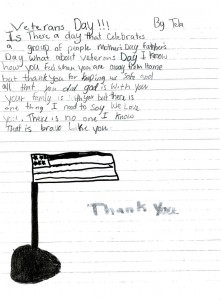 Veterans Day!!! By Tela
Is There a day that Celebrates
a group of pleple Mother's Day, Father's
Day. What about Veterans Day I know
how you feel when you are away from home
but thank you for keping us safe and
all that you did god is With you
your family is with you but there is
one thing I need to say We Love
you. There is no one I know
That is brave Like you
Thank You